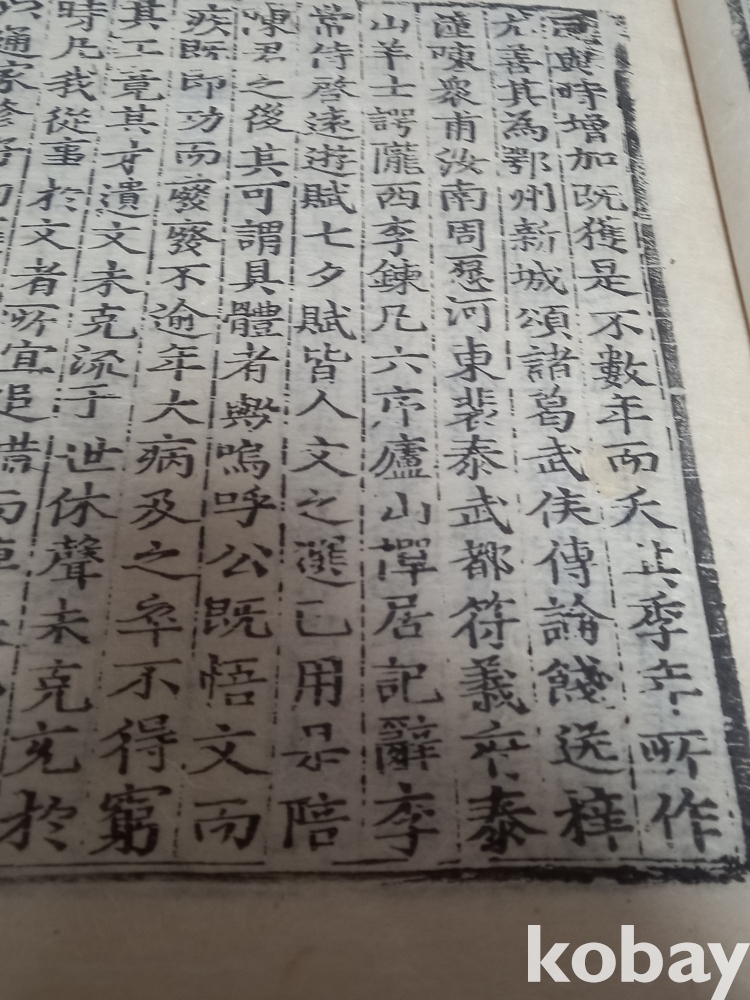 風與時增加既獲是不數年而夭其季年所作
尤善其為鄂州新城頌諸葛武侯傳論餞送梓
潼陳衆甫汝南周愿河東裴泰武都符義府泰
山羊士諤隴西李鍊凡六序廬山禪居記辭李
常侍啓遠遊賦七夕賦皆人文之選已用是陪
陳君之後其可謂具體者歟嗚呼公既悟文而
疾既即功而廢廢不逾年大病及之卒不得窮
其工竟其才遺文未克流于世休聲未克充於
時凡我從事於文者所宜追惜而悼
通家修好幼
kobay